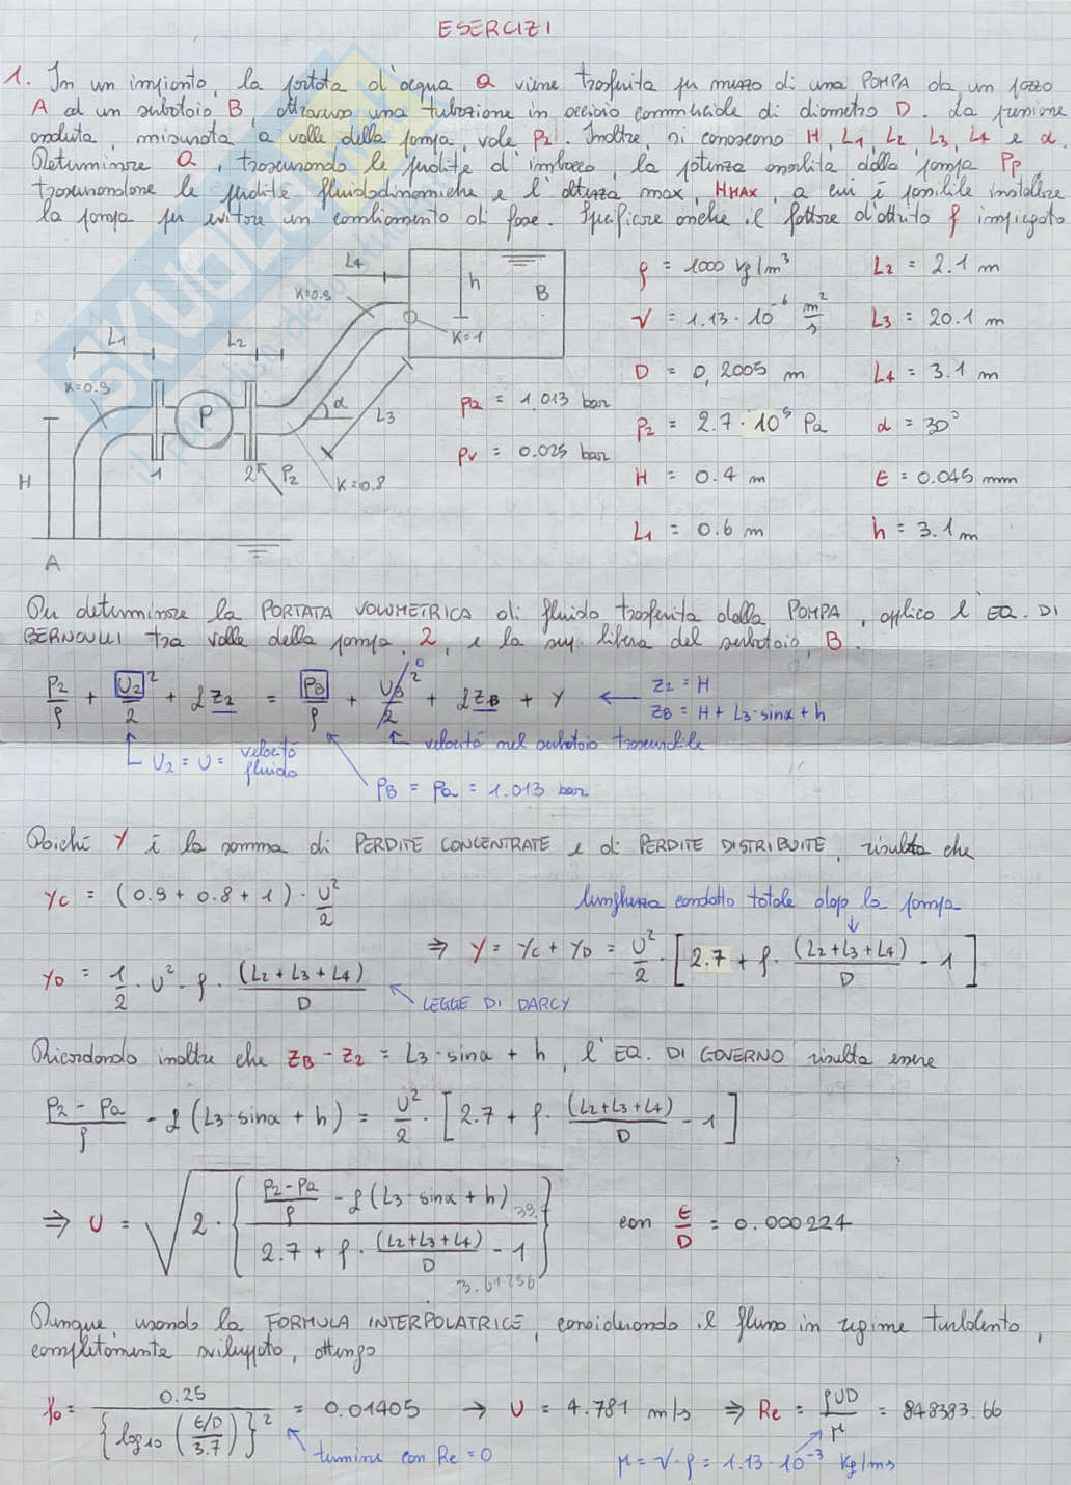 ESERCIZI
1. In un impianto, la portata d'acqua Q viene trasferita per mezzo di una POMPA da un pozzo
A ad un serbatoio B, attraverso una tubazione in acciaio commerciale di diametro D. La pressione
assoluta, misurata a valle della pompa, vale P2. Inoltre, si conoscono H, L1, L2, L3, L4 e α.
Determinare Q, trascurando le perdite d'imbocco, la potenza assorbita dalla pompa Pp
trascurandone le perdite fluidodinamiche e l'altezza max, HMAX, a cui è possibile installare
la pompa per evitare un cambiamento di fase. Specificare anche il fattore d'attrito f impiegato
L4
K=0.9
h
B
K=1
L1
L2
K=0.9
P
α
L3
H
1
2
P2
K=0.8
A
pa = 1.013 bar
pv = 0.025 bar
ρ = 1000 kg/m³
L2 = 2.1 m
ν = 1.13·10⁻⁶ m²/s
L3 = 20.1 m
D = 0,2005 m
L4 = 3.1 m
P2 = 2.7·10⁵ Pa
α = 30°
H = 0.4 m
ε = 0.045 mm
L1 = 0.6 m
h = 3.1 m
Per determinare la PORTATA VOLUMETRICA di fluido trasferita dalla POMPA, applico l'EQ. DI
BERNOULLI tra valle della pompa, 2, e la sup. libera del serbatoio, B.
P2/ρ + U2²/2 + g z2 = PB/ρ + UB²/2 + g zB + Y
0
z2 = H
zB = H + L3·sinα + h
U2 = U = velocità fluido
velocità nel serbatoio trascurabile
PB = Pa = 1.013 bar
Poiché Y è la somma di PERDITE CONCENTRATE e di PERDITE DISTRIBUITE, risulta che
Yc = (0.9 + 0.8 + 1) · U²/2
lunghezza condotto totale dopo la pompa
⇒ Y = Yc + YD = U²/2 · [2.7 + f · (L2+L3+L4)/D - 1]
YD = 1/2 · U² · f · (L2 + L3 + L4)/D
LEGGE DI DARCY
Ricordando inoltre che zB - z2 = L3·sinα + h, l'EQ. DI GOVERNO risulta essere
P2 - Pa/ρ - g (L3·sinα + h) = U²/2 · [2.7 + f · (L2+L3+L4)/D - 1]
⇒ U = √2 · {P2-Pa/ρ - g (L3·sinα + h) / 2.7 + f · (L2+L3+L4)/D - 1}
39.7
3.61756
con ε/D = 0.000224
Dunque, usando la FORMULA INTERPOLATRICE, considerando il flusso in regime turbolento,
completamente sviluppato, ottengo
f0 = 0.25/{log10 (ε/D/3.7)}² = 0.01405 → U = 4.781 m/s ⇒ Re = ρUD/μ = 848383.66
termine con Re = 0
μ = ν·ρ = 1.13·10⁻³ kg/ms